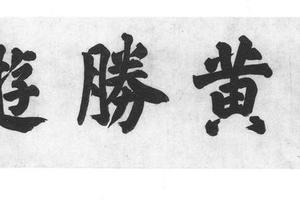 黄勝遊